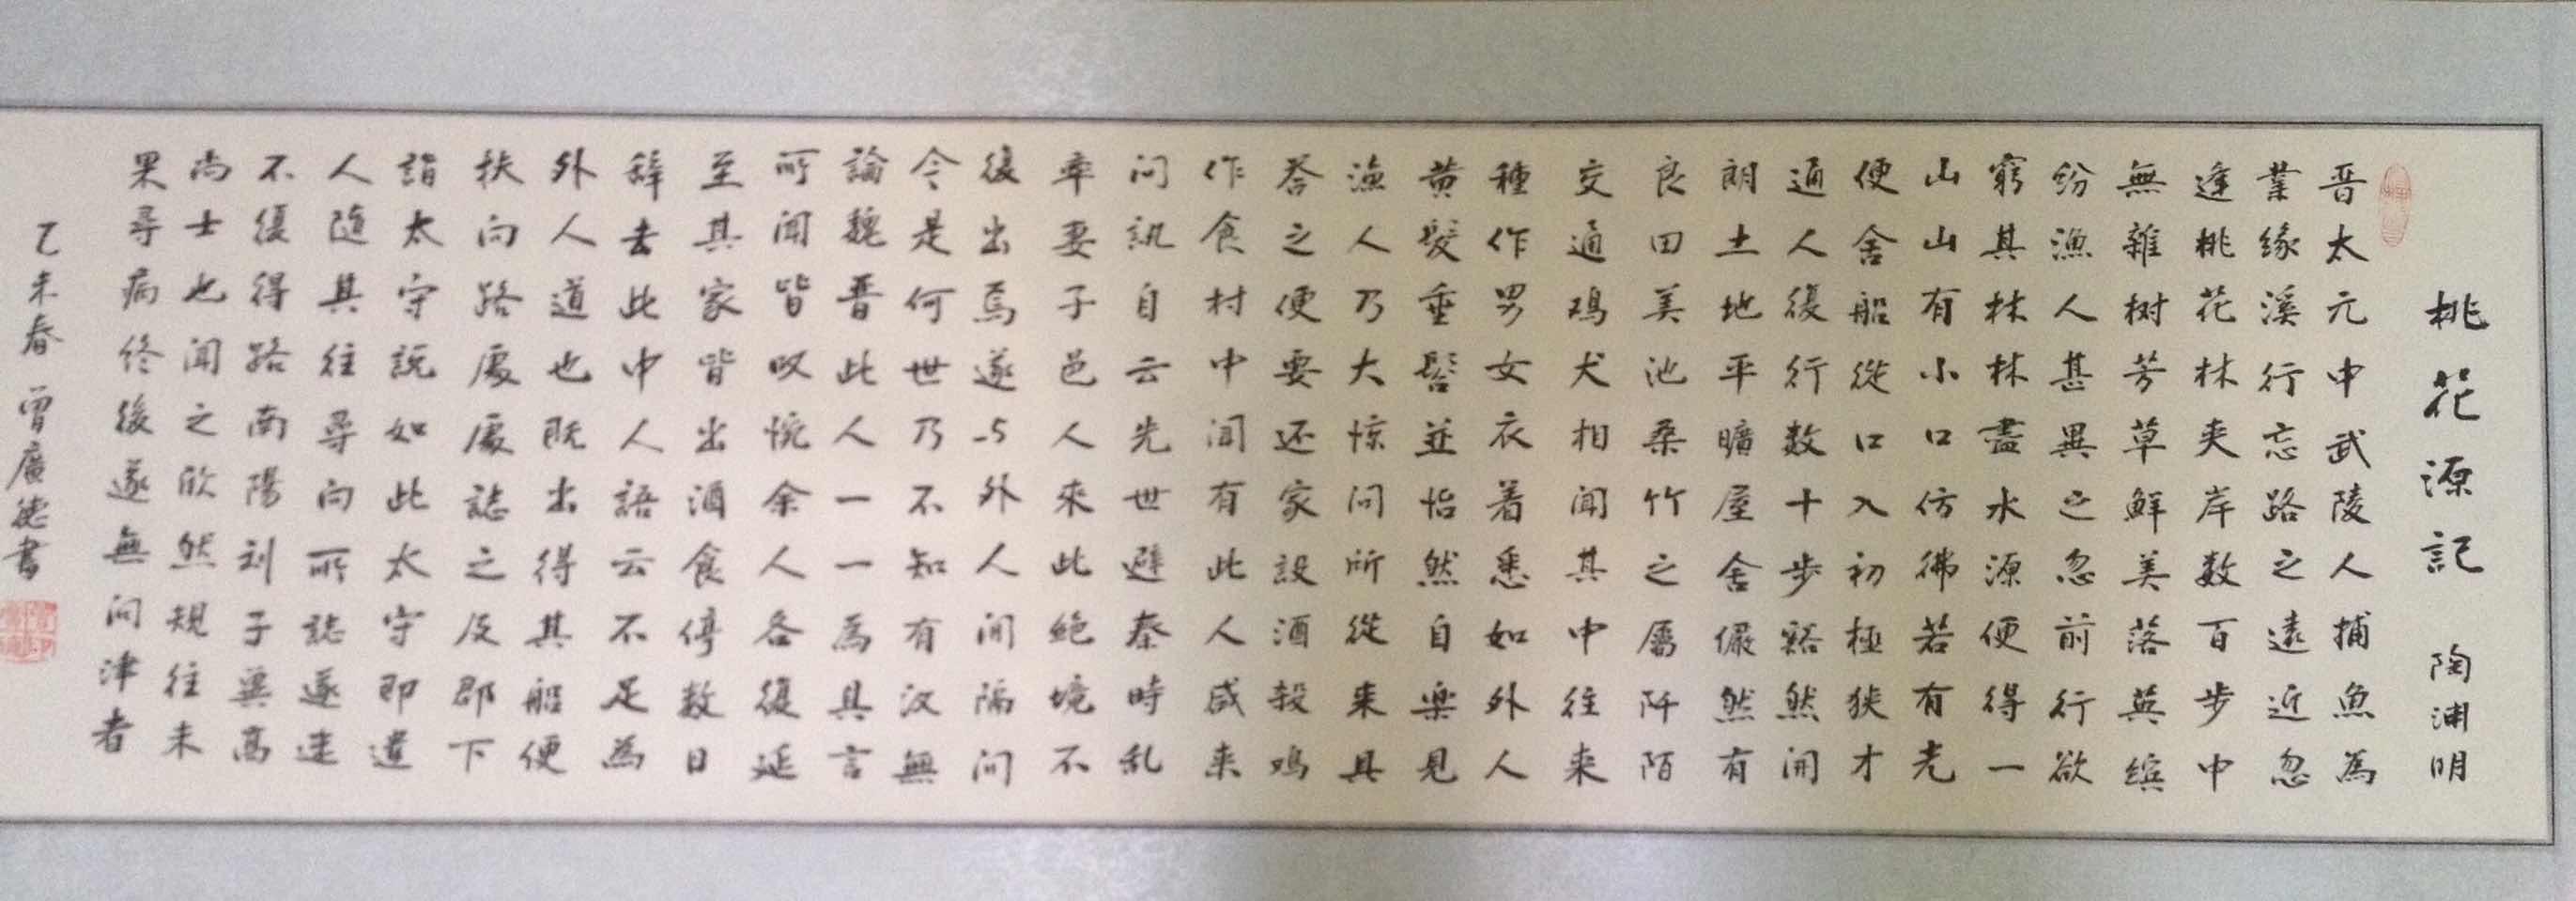 桃花源記 陶渊明
晋太元中武陵人捕魚為
業缘溪行忘路之遠近忽
逢桃花林夹岸数百步中
無雜树芳草鮮美落英缤
纷漁人甚異之忽前行欲
窮其林林盡水源便得一
山山有小口仿彿若有光
便舍船從口入初極狭才
通人復行数十步豁然開
朗土地平曠屋舍儼然有
良田美池桑竹之屬阡陌
交通鸡犬相闻其中往来
種作男女衣着悉如外人
黄髮垂髫並怡然自樂見
漁人乃大惊问所從来具
答之便要还家設酒殺鸡
作食村中闻有此人咸来
问訊自云先世避秦時乱
率妻子邑人來此絶境不
復出焉遂与外人间隔问
今是何世乃不知有汉無
論魏晋此人一一為具言
所闻皆叹惋余人各復延
至其家皆出酒食停数日
辞去此中人語云不足為
外人道也既出得其船便
扶向路處處誌之及郡下
詣太守説如此太守即遣
人随其往尋向所誌遂迷
不復得路南陽刘子冀高
尚士也闻之欣然規往未
果尋病终後遂無问津者
乙未春 曾廣德書